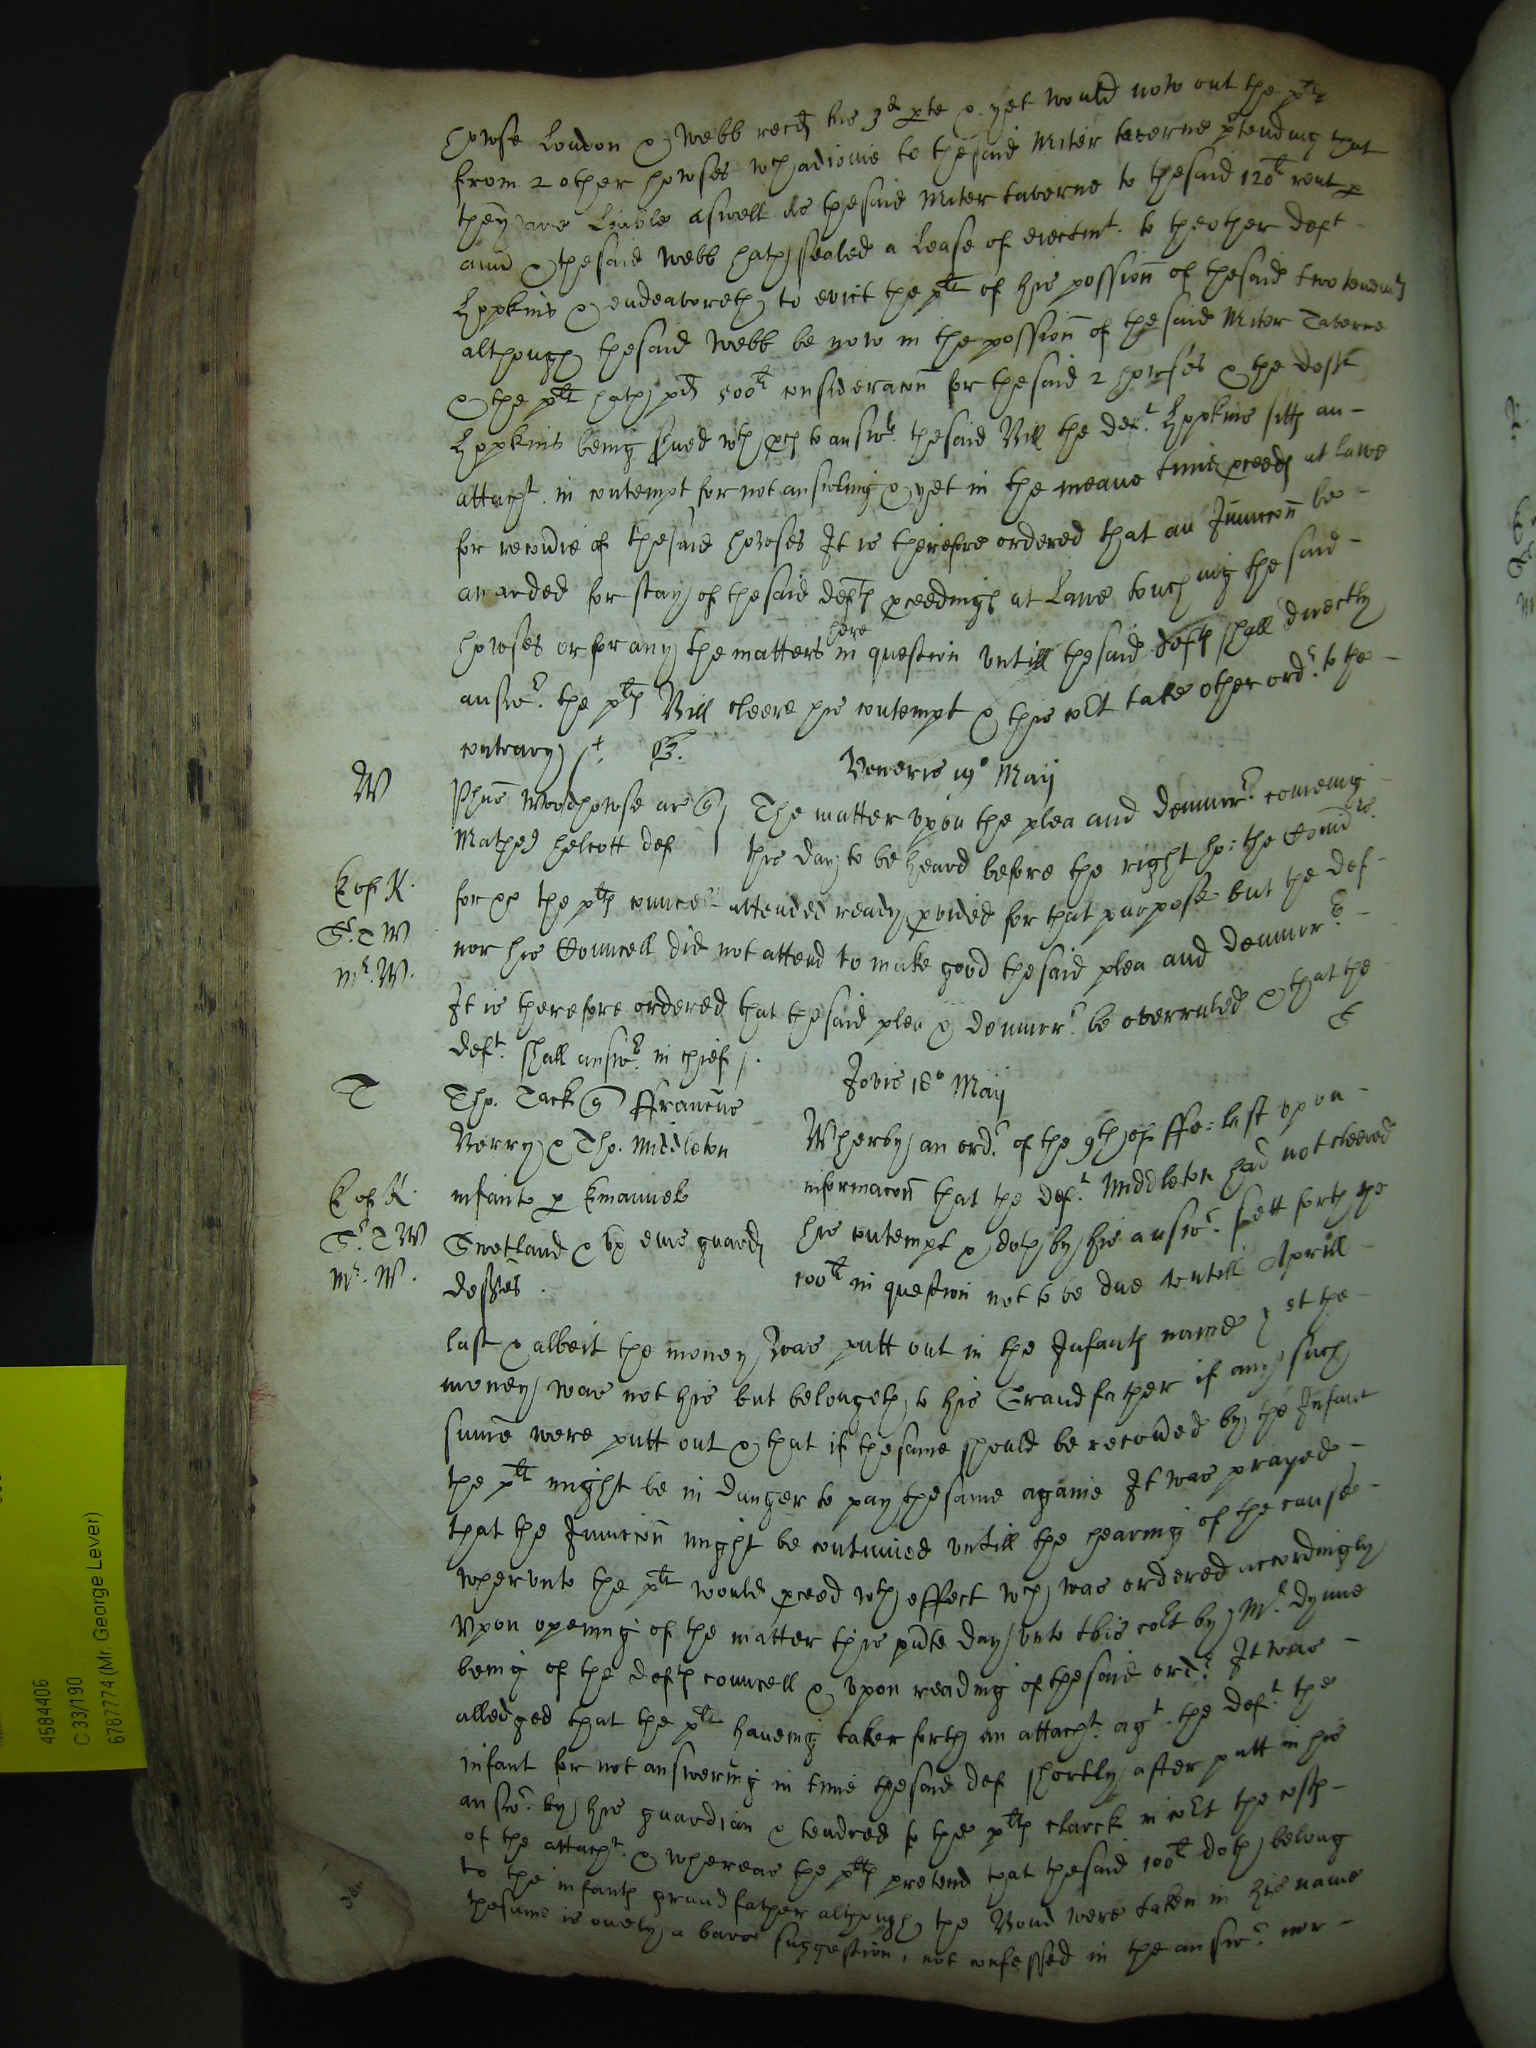 howse London & Webb recd his 3d pte & yet would now out the plt
from 2 other howses wch adioine to the said Miter taverne ptending that
they are lyable aswell as the said Miter taverne to the said 120li rent p
ann & the said Webb hath sealed a lease of eiectmt. to the other deft
Hopkins & endeavoreth to evict the plt of his possion of the said two tenemts
although the said Webb be now in the possion of the said Miter Taverne
& the plt hath pd 500li consideracon for the said 2 howses & the deft
Hopkins being served wth pces to answr the said Bill the deft. Hopkins sitts an
attacht. in contempt for not answering & yet in the meane time pceeds at lawe
for recovie of the said howses It is therefore ordered that an Iniuncon be
awarded for stay of the said defts pceedings at Lawe touching the said
howses or for any the matters here in question untill the said defts shall directly
answr. the plts Bill cleere his contempt & this cort take other ordr. to the
contrary
Veneris 19o Maij
W
Phus Woodhowse ar q
Mathew Helcott def
The matter upon the plea and demurr. comeing
this day to be heard before the right ho: the Comrs.
E of K.
Sr. T W
Mr. W.
for &c the plts councell attended ready pvided for that purpose but the def
nor his Councell did not attend to make good the said plea and demurr.
It is therefore ordered that the said plea & demurr. be overruled & that the
deft. shall answr. in chief.
Jovis 18o Maij
T
Tho. Tack q ffrancus
Berry & Tho. Middleton
infant p Emanuel
Swetland & ux eius guard
deftes.
E of K.
Sr. T W
Mr. W.
Wherby an ordr. of the 9th of ffe: last upon
informacon that the deft. Middleton had not cleered
his contempt & doth by his answr. sett forth the
100li in question not to be due untill Aprill
last & albeit the money was putt out in the Infants name yet the
money was not his but belongeth to his Grandfather if any such
summe were putt out & that if the same should be recoved by the Infant
the plt might be in danger to pay the same againe It was prayed
that the Iniuncon might be continued untill the hearing of the cause
wherunto the plt would pceed wth effect wch was ordered accordingly
Upon opening of the matter this pnte day unto this cort by Mr. Dynne
being of the defts councell & upon reading of the said ordr. It was
alledged that the plt haveing taken forth an attacht. agt. the deft. the
infant for not answering in time the said def shortly after putt in his
answr. by his guardian & tendred to the plts clarck in cort the costs
of the attacht. & whereas the plts pretend that the said 100li doth belong
to the infants grandfather although the Bond were taken in his name
the same is onely a bare suggestion, not confessed in the answr. nor
4584406
C 33/190
6787774 (Mr. George Lever)